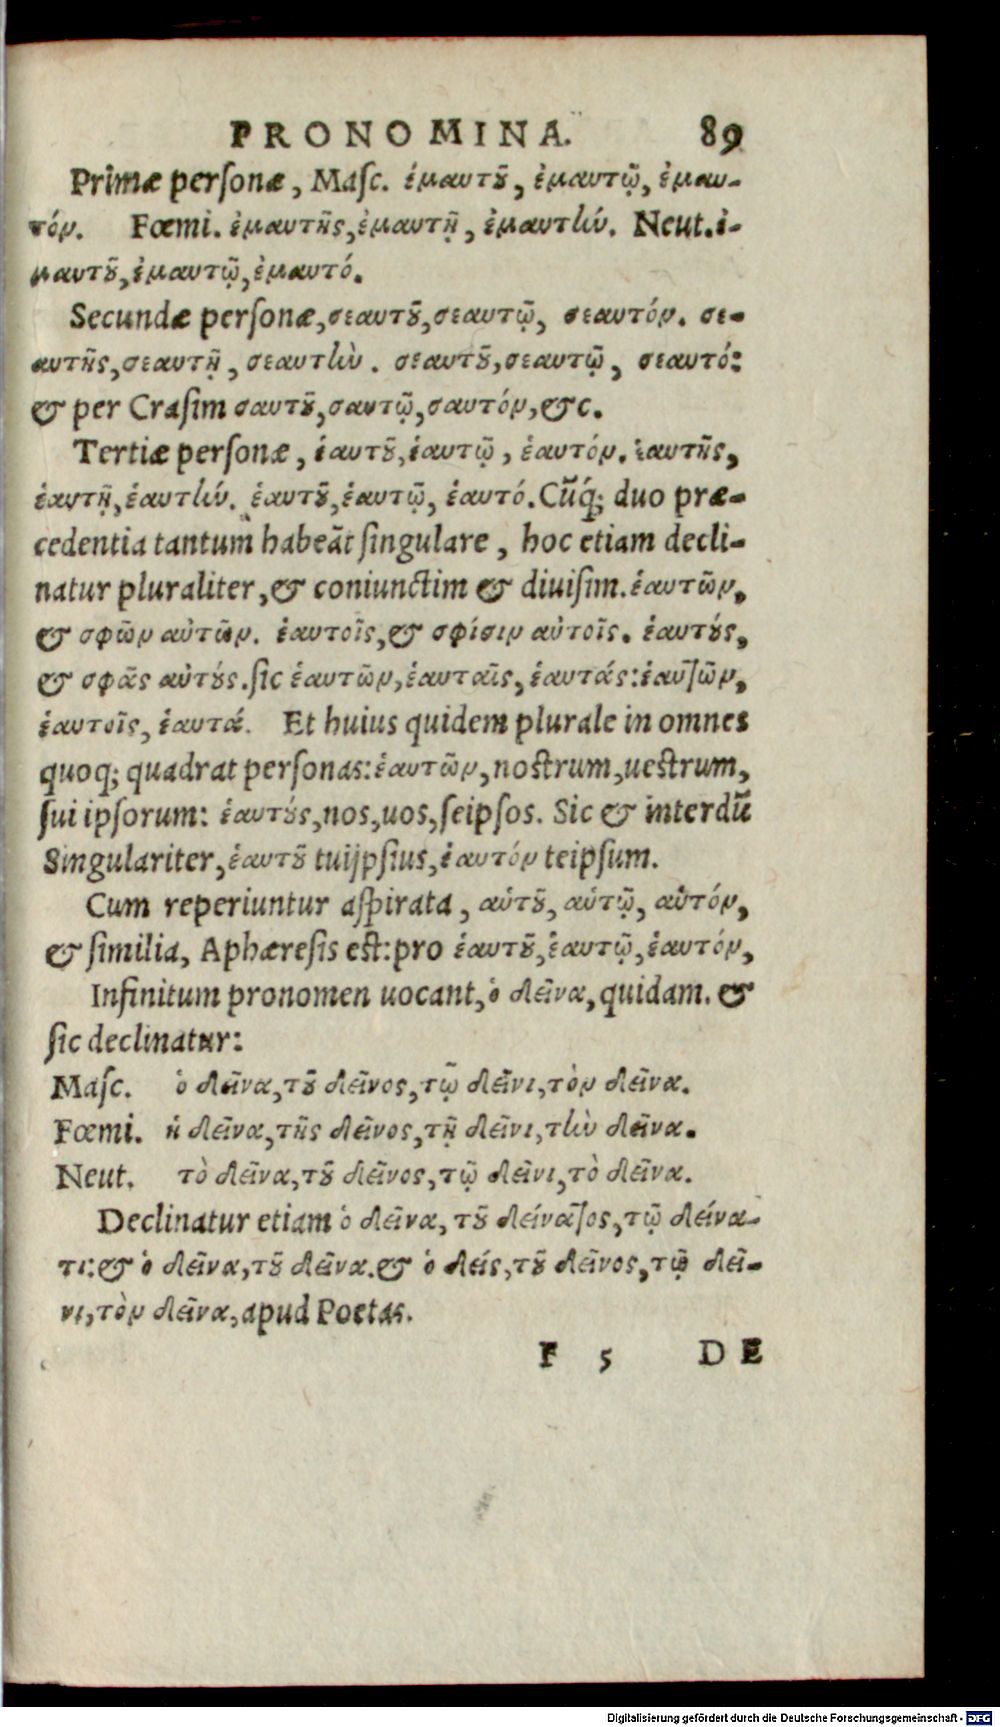 PRONOMINA. 89
Primæ personæ, Masc. ἐμαυτοῦ, ἐμαυτῷ, ἐμαυ-
τόν. Fœmi. ἐμαυτῆς, ἐμαυτῇ, ἐμαυτήν. Neut. ἐ-
μαυτοῦ, ἐμαυτῷ, ἐμαυτό.
Secundæ personæ, σεαυτοῦ, σεαυτῷ, σεαυτόν. σε-
αυτῆς, σεαυτῇ, σεαυτὴν. σεαυτοῦ, σεαυτῷ, σεαυτό:
& per Crasim σαυτοῦ, σαυτῷ, σαυτόν, &c.
Tertiæ personæ, ἑαυτοῦ, ἑαυτῷ, ἑαυτόν. ἑαυτῆς,
ἑαυτῇ, ἑαυτήν. ἑαυτοῦ, ἑαυτῷ, ἑαυτό. Cũq́; duo præ-
cedentia tantum habeãt singulare, hoc etiam decli-
natur pluraliter, & coniunctim & diuisim. ἑαυτῶν,
& σφῶν αὐτῶν. ἑαυτοῖς, & σφίσιν αὐτοῖς. ἑαυτούς,
& σφᾶς αὐτούς. sic ἑαυτῶν, ἑαυταῖς, ἑαυτάς: ἑαυτῶν,
ἑαυτοῖς, ἑαυτά. Et huius quidem plurale in omnes
quoq; quadrat personas: ἑαυτῶν, nostrum, uestrum,
sui ipsorum: ἑαυτούς, nos, uos, seipsos. Sic & interdũ
Singulariter, ἑαυτοῦ tuijpsius, ἑαυτόν teipsum.
Cum reperiuntur aspirata, αὑτοῦ, αὑτῷ, αὑτόν,
& similia, Aphæresis est: pro ἑαυτοῦ, ἑαυτῷ, ἑαυτόν,
Infinitum pronomen uocant, ὁ δεῖνα, quidam. &
sic declinatur:
Masc. ὁ δεῖνα, τοῦ δεῖνος, τῷ δεῖνι, τὸν δεῖνα.
Fœmi. ἡ δεῖνα, τῆς δεῖνος, τῇ δεῖνι, τὴν δεῖνα.
Neut. τὸ δεῖνα, τοῦ δεῖνος, τῷ δεῖνι, τὸ δεῖνα.
Declinatur etiam ὁ δεῖνα, τοῦ δείνατος, τῷ δείνα-
τι: & ὁ δεῖνα, τοῦ δεῖνα. & ὁ δείς, τοῦ δεῖνος, τῷ δεῖ-
νι, τὸν δεῖνα, apud Poetas.
F 5 DE
Digitalisierung gefördert durch die Deutsche Forschungsgemeinschaft - DFG